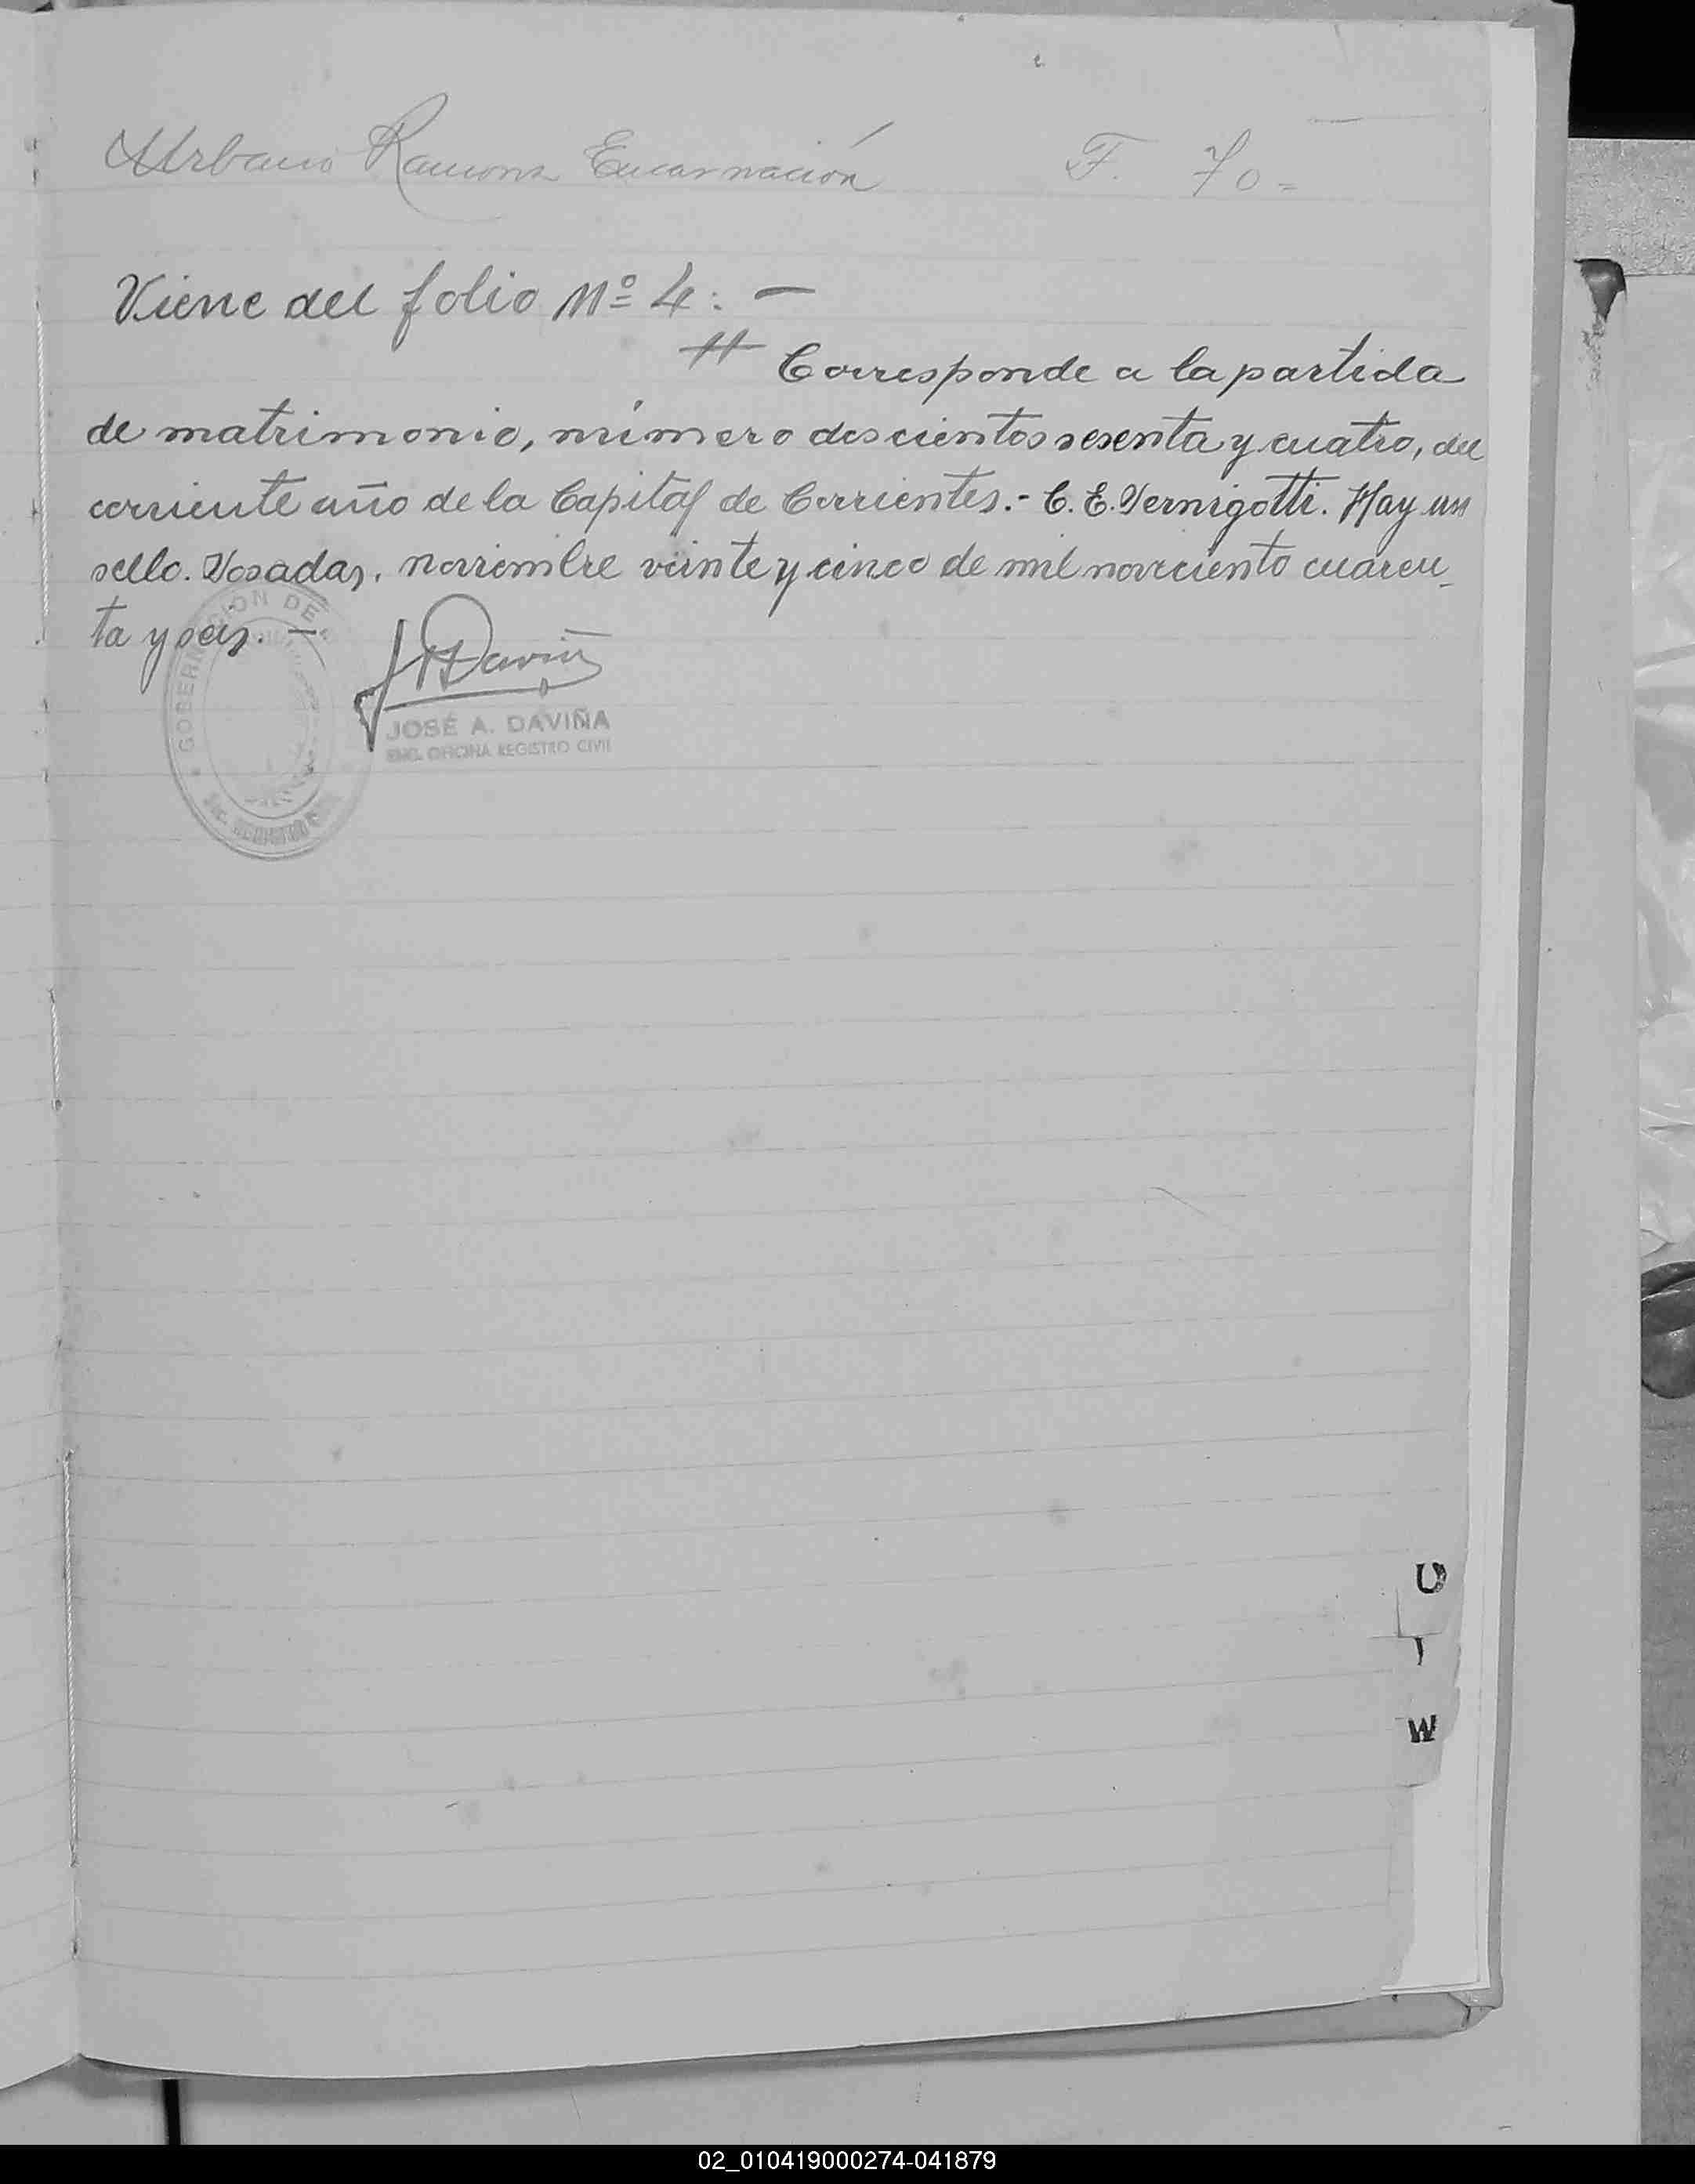 Urbano Ramona Encarnación F. 70=
Viene del folio Nº 4: —
# Corresponde a la partida
de matrimonio, número doscientos sesenta y cuatro, del
corriente año de la Capital de Corrientes.- C. E. Vernigotti. Hay un
sello. Posadas, noviembre veinte y cinco de mil noveciento cuaren_
ta y seis. —
GOBERNACION DE
JOSÉ A. DAVIÑA
ENC. OFICINA REGISTRO CIVIL
U
W
02_010419000274-041879